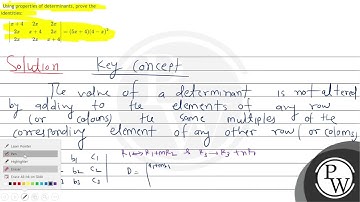 Using properties of determinants; prove the
Identities:
|x+4 2x 2x|
|2x x+4 2x| = (5x+4)(4-x)²
|2x 2x x+4|
Solution Key Concept
The value of a determinant is not altered
by adding to the elements of any row
(or coloums) the same multiples of the
corresponding element of any other row (or coloms)
b1 c1
b2 c2 D =
b3 c3
Laser Pointer
Pen
Highlighter
Eraser
Erase All Ink on Slide
PW